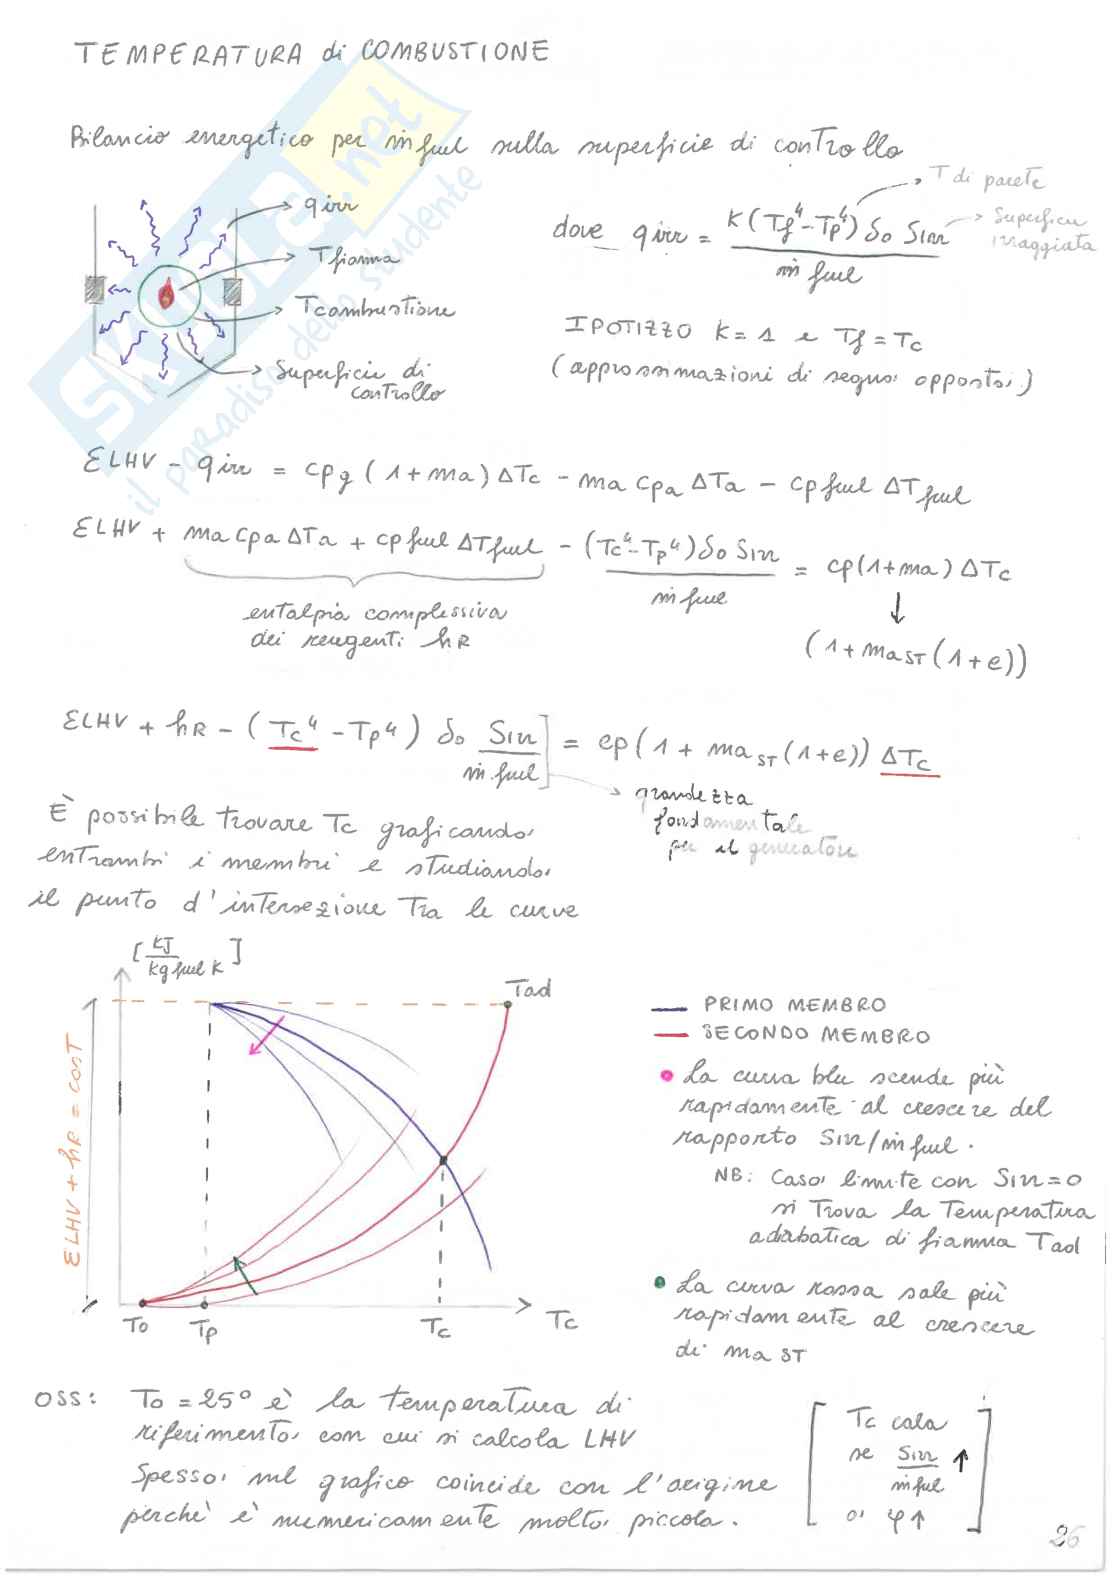 TEMPERATURA di COMBUSTIONE
Bilancio energetico per ṁ fuel sulla superficie di controllo
q irr
T fiamma
T combustione
Superficie di
controllo
dove q irr = K (Tf⁴ - Tp⁴) δo Sirr / ṁ fuel
T di parete
Superficie
irraggiata
IPOTIZZO K = 1 e Tf = Tc
(approssimazioni di segno opposto)
ƐLHV - q irr = cpg (1 + ma) ΔTc - ma cpa ΔTa - cp fuel ΔT fuel
ƐLHV + ma cpa ΔTa + cp fuel ΔT fuel - (Tc⁴ - Tp⁴) δo Sirr / ṁ fuel = cp (1 + ma) ΔTc
entalpia complessiva
dei reagenti hR
(1 + ma ST (1 + e))
ƐLHV + hR - (Tc⁴ - Tp⁴) δo Sirr / ṁ fuel = cp (1 + ma ST (1 + e)) ΔTc
grandezza
fondamentale
per il generatore
È possibile trovare Tc graficando
entrambi i membri e studiando
il punto d'intersezione tra le curve
[kJ / kg fuel K]
Tad
ƐLHV + hR = cost
To
Tp
Tc
Tc
PRIMO MEMBRO
SECONDO MEMBRO
La curva blu scende più
rapidamente al crescere del
rapporto Sirr/ṁ fuel.
NB: Caso limite con Sirr = 0
si trova la temperatura
adiabatica di fiamma Tad
La curva rossa sale più
rapidamente al crescere
di ma ST
OSS: To = 25° è la temperatura di
riferimento con cui si calcola LHV
Spesso nel grafico coincide con l'origine
perchè è numericamente molto piccola.
Tc cala
se Sirr / ṁ fuel ↑
o φ ↑
26
SKUOLA.net
il paradiso dello studente